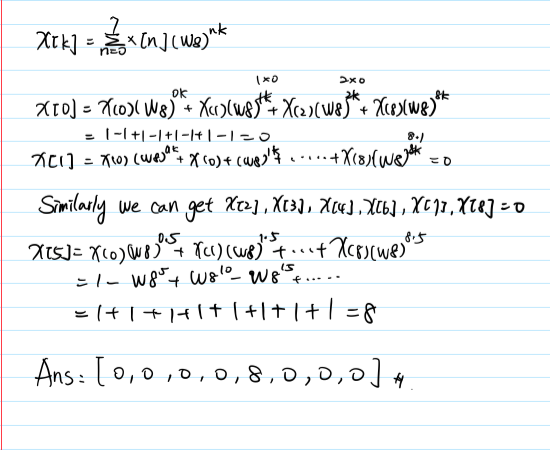 X[k] = 7 Σ n=0 x[n] (W8)^nk
1×0 2×0
X[0] = X(0)(W8)^0k + X(1)(W8)^1k + X(2)(W8)^2k + X(8)(W8)^8k
= 1-1+1-1+1-1+1-1=0
8·1
X[1] = X(0)(W8)^0k + X(0)+(W8)^1k + ......+X(8)(W8)^8k = 0
Similarly we can get X[2], X[3], X[4], X[6], X[7], X[8] = 0
X[5] = X(0)(W8)^0.5 + X(1)(W8)^1.5 + ...+ X(8)(W8)^8.5
= 1 - W8^5 + W8^10 - W8^15 + .....
= 1+1+1+1+1+1+1+1 = 8
Ans: [0, 0, 0, 0, 8, 0, 0, 0]